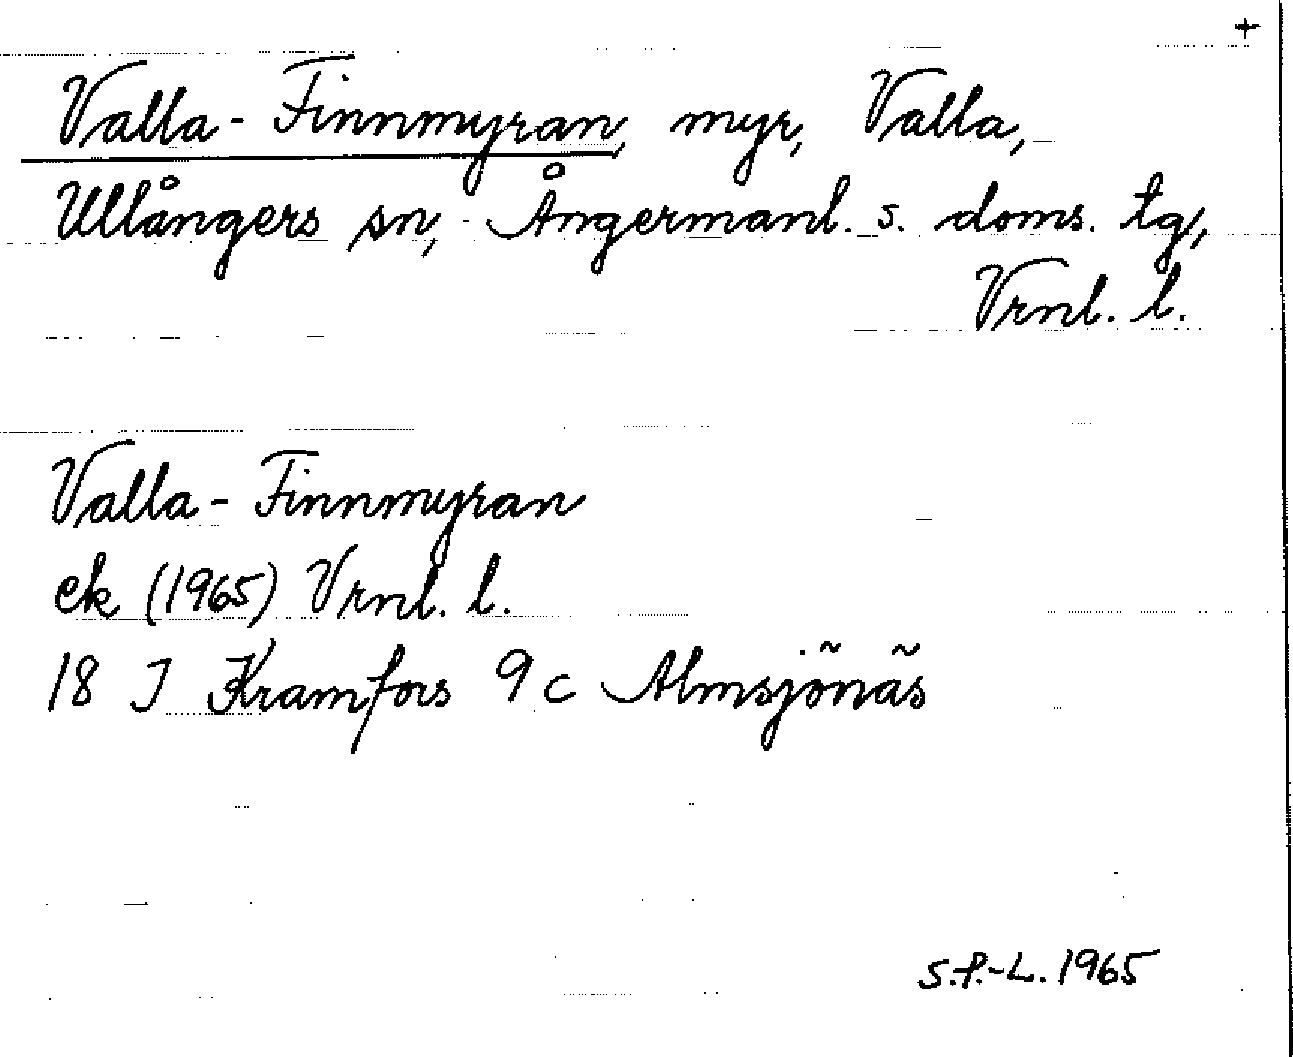 +
Valla-Finnmyran, myr, Valla,
Ullångers sn, Ångermanl. s. doms. tg,
Vrnl. l.
Valla-Finnmyran
ek (1965) Vrnl. l.
18 J Kramfors 9 c Älmsjönäs
S.P.-L. 1965